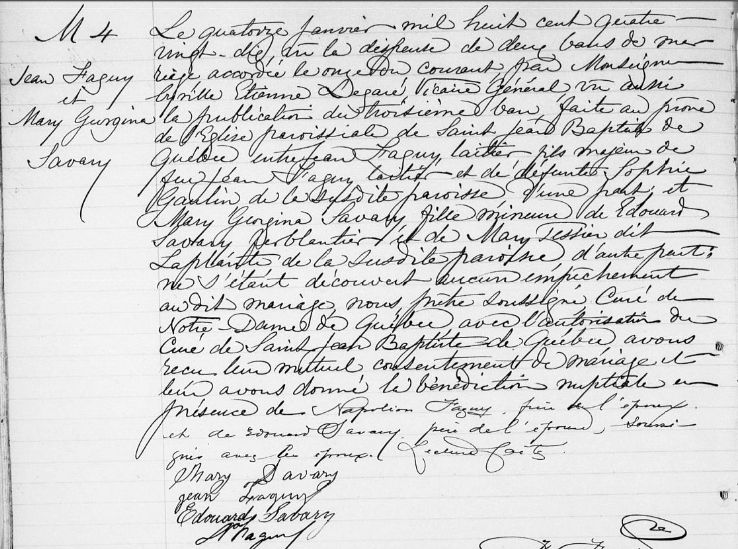 M 4
Jean Faguy
et
Mary Georgina
Savary
Le quatorze janvier mil huit cent quatre-
vingt-dix, vu la dispense de deux bans de mar
riage accordée le onze du courant par Monseigneur
Cyrille Etienne Legaré, Vicaire Général vu aussi
la publication du troisième ban, faite au prone
de l'Eglise paroissiale de Saint Jean Baptiste de
Québec entre Jean Faguy, laitier, fils majeur de
feu Jean Faguy, laitier et de défunte Sophie
Gaulin de la susdite paroisse d'une part; et
Mary Georgina Savary fille mineure de Edouard
Savary ferblantier et de Mary Tessier dit
Laplante de la susdite paroisse d'autre part:
ne s'étant découvert aucun empêchement
au dit mariage, nous prêtre soussigné Curé de
Notre-Dame de Québec avec l'autorisation du
Curé de Saint Jean Baptiste de Québec avons
reçu leur mutuel consentement de mariage et
leur avons donné la bénédiction nuptiale en
présence de Napoléon Faguy, frère de l'époux
et de Edouard Savary père de l'épouse, soussi-
gnés avec les époux. Lecture faite.
Mary Savary
Jean Faguy
Edouard Savary
N Faguy